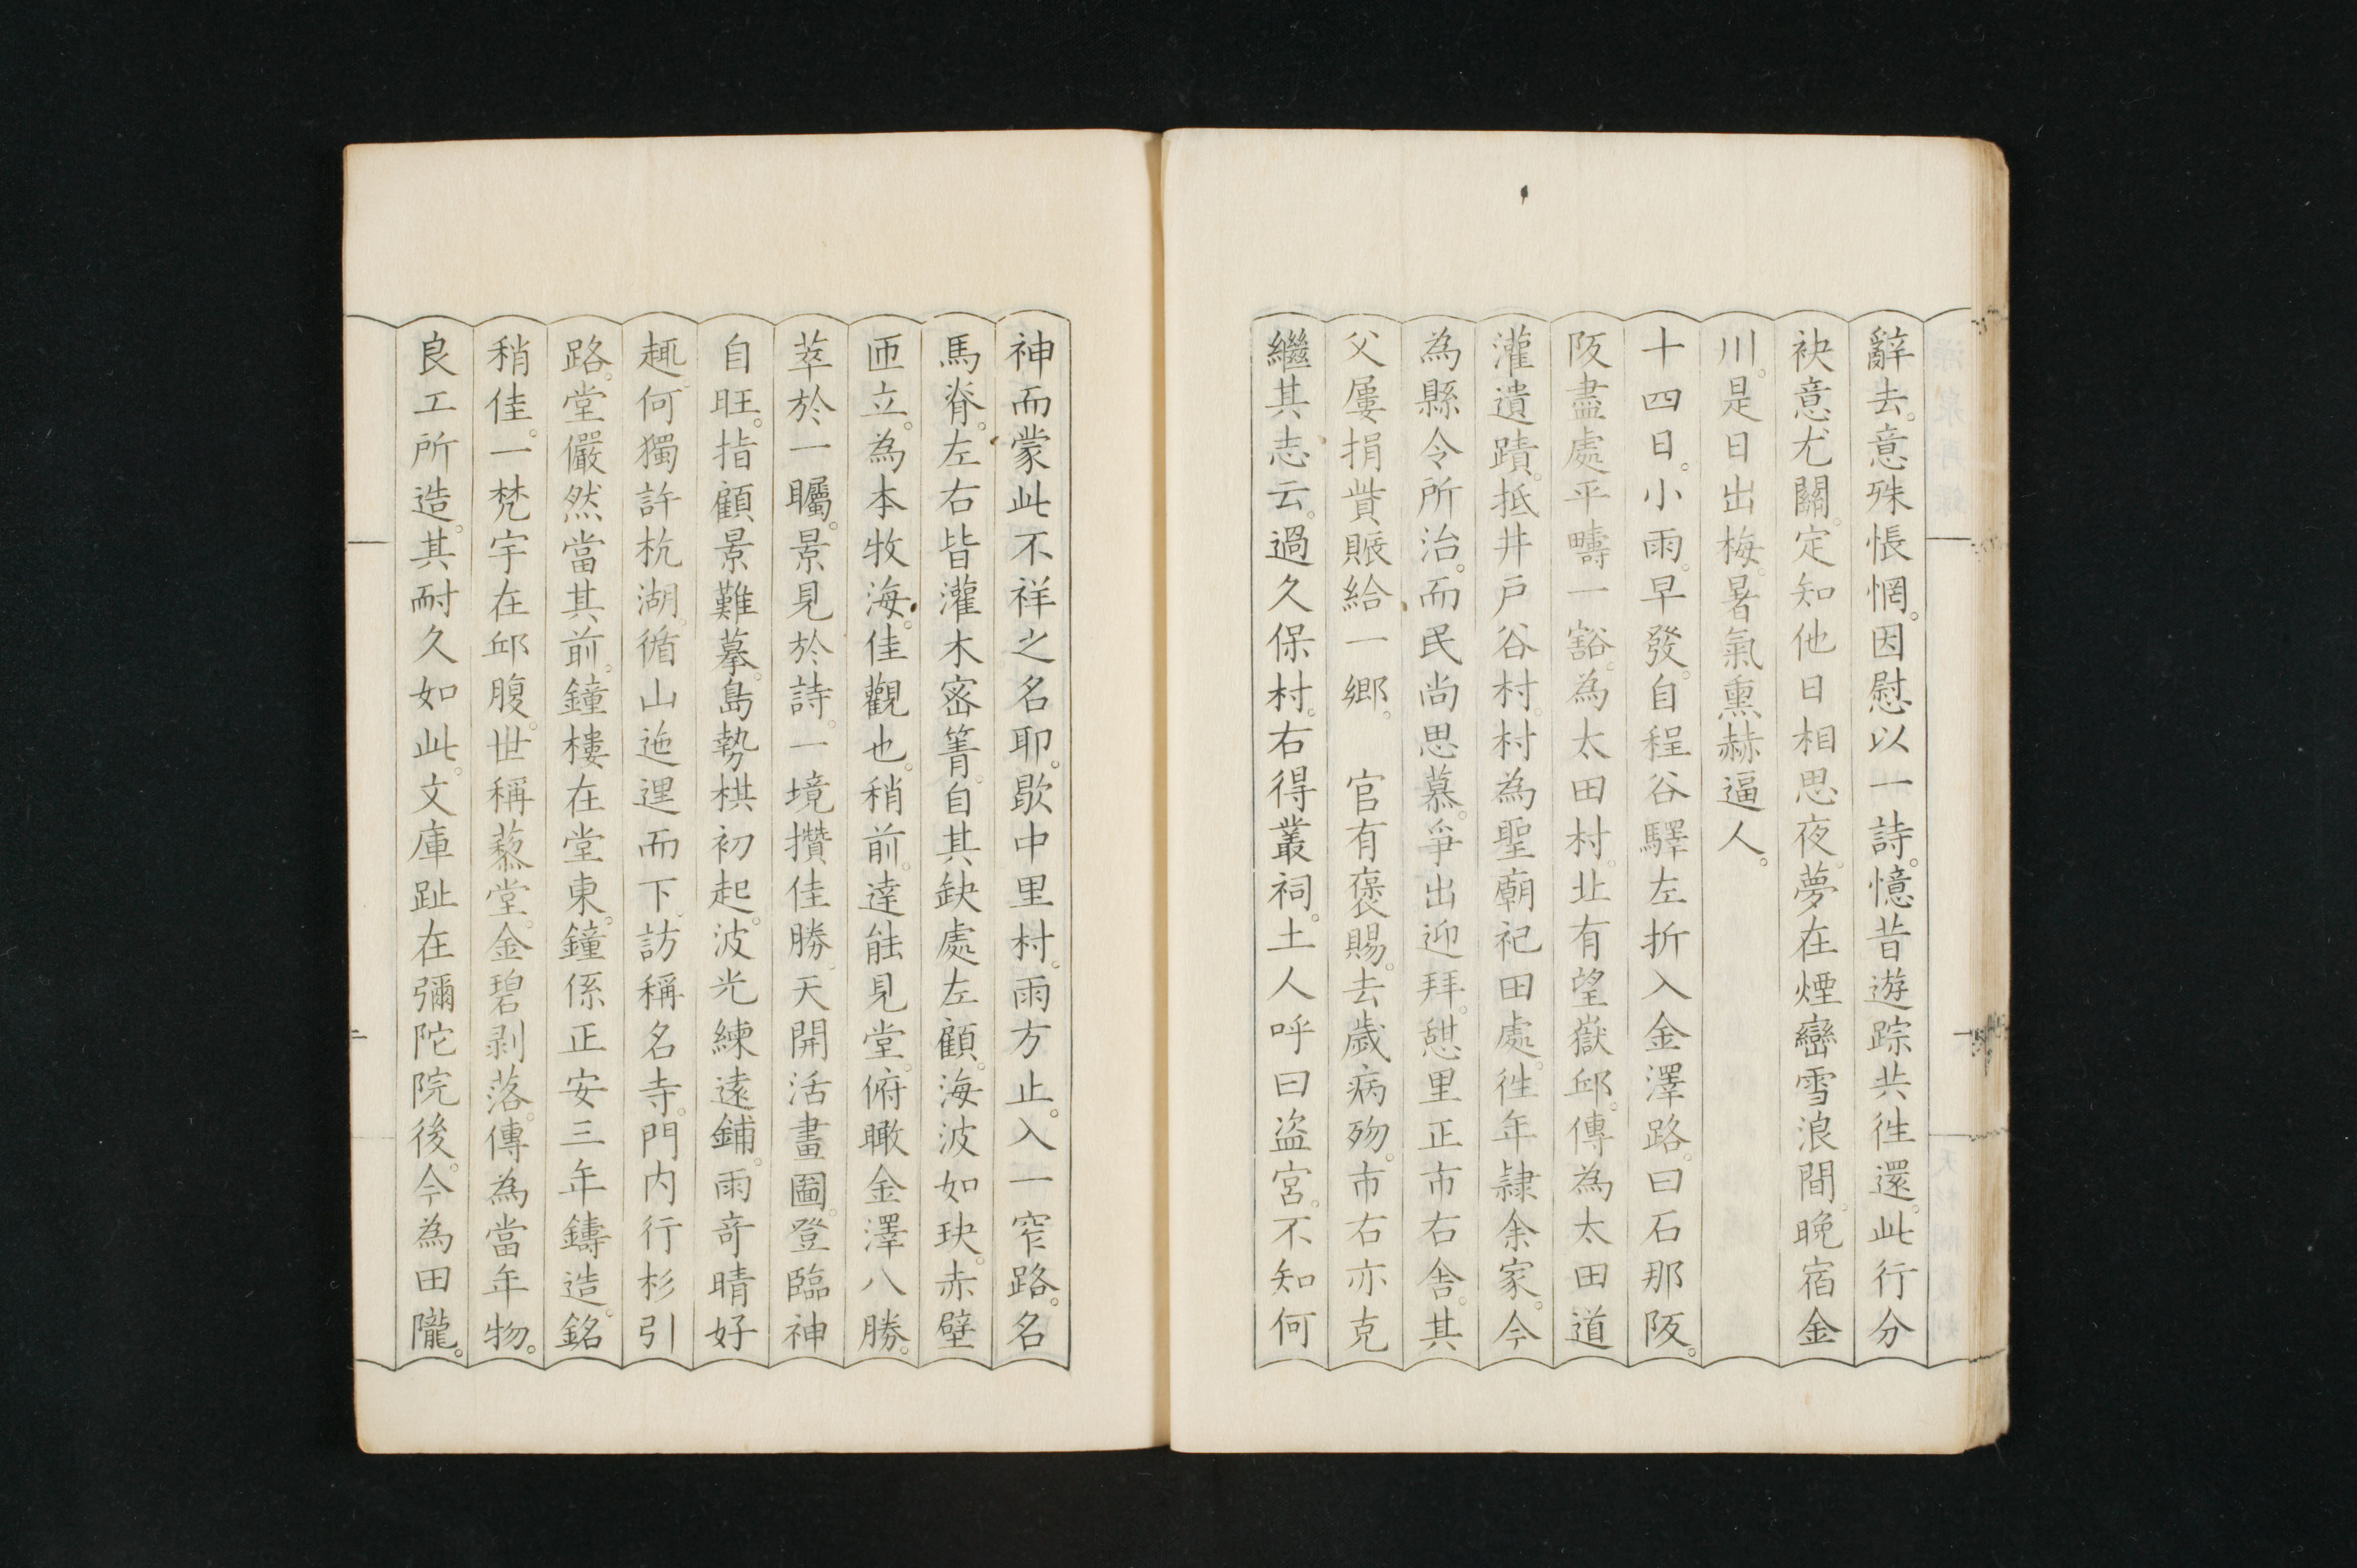 辭去。意殊悵惘。因慰以一詩。憶昔遊踪共徃還。此行分
袂意尤關。定知他日相思夜。夢在煙巒雪浪間。晚宿金
川。是日出梅。暑氣熏赫逼人。
十四日。小雨。早發。自程谷驛左折入金澤路。曰石那阪。
阪盡處平疇一豁。為太田村。北有望嶽邱。傳為太田道
灌遺蹟。抵井戶谷村。村為聖廟祀田處。徃年隷余家。今
為縣令所治。而民尚思慕。爭出迎拜。憇里正市右舍。其
父屢捐貲賑給一鄉。　官有褒賜。去歲病歾。市右亦克
繼其志云。過久保村。右得叢祠。土人呼曰盜宮。不知何
神而蒙此不祥之名耶。歇中里村。雨方止。入一窄路。名
馬脊。左右皆灌木密箐。自其缺處左顧。海波如玦。赤壁
匝立。為本牧海。佳觀也。稍前。達能見堂。俯瞰金澤八勝。
萃於一矚。景見於詩。一境攢佳勝。天開活畫圖。登臨神
自旺。指顧景難摹。島勢棋初起。波光練遠鋪。雨奇晴好
趣。何獨許杭湖。循山迤邐而下。訪稱名寺。門內行杉引
路。堂儼然當其前。鐘樓在堂東。鐘係正安三年鑄造。銘
稍佳。一梵宇在邱腹。世稱藜堂。金碧剥落。傳為當年物。
良工所造。其耐久如此。文庫趾在彌陀院後。今為田隴。